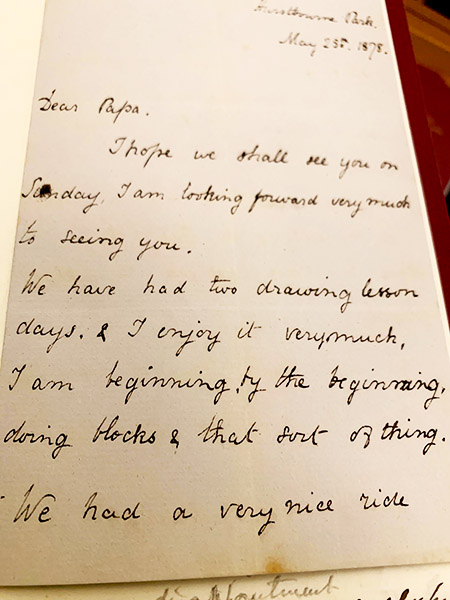 Hurstbourne Park.
May 23rd. 1878.
Dear Papa.
I hope we shall see you on
Sunday, I am looking forward very much
to seeing you.
We have had two drawing lesson
days. & I enjoy it very much,
I am beginning, by the beginning,
doing blocks & that sort of thing.
We had a very nice ride
disappointment